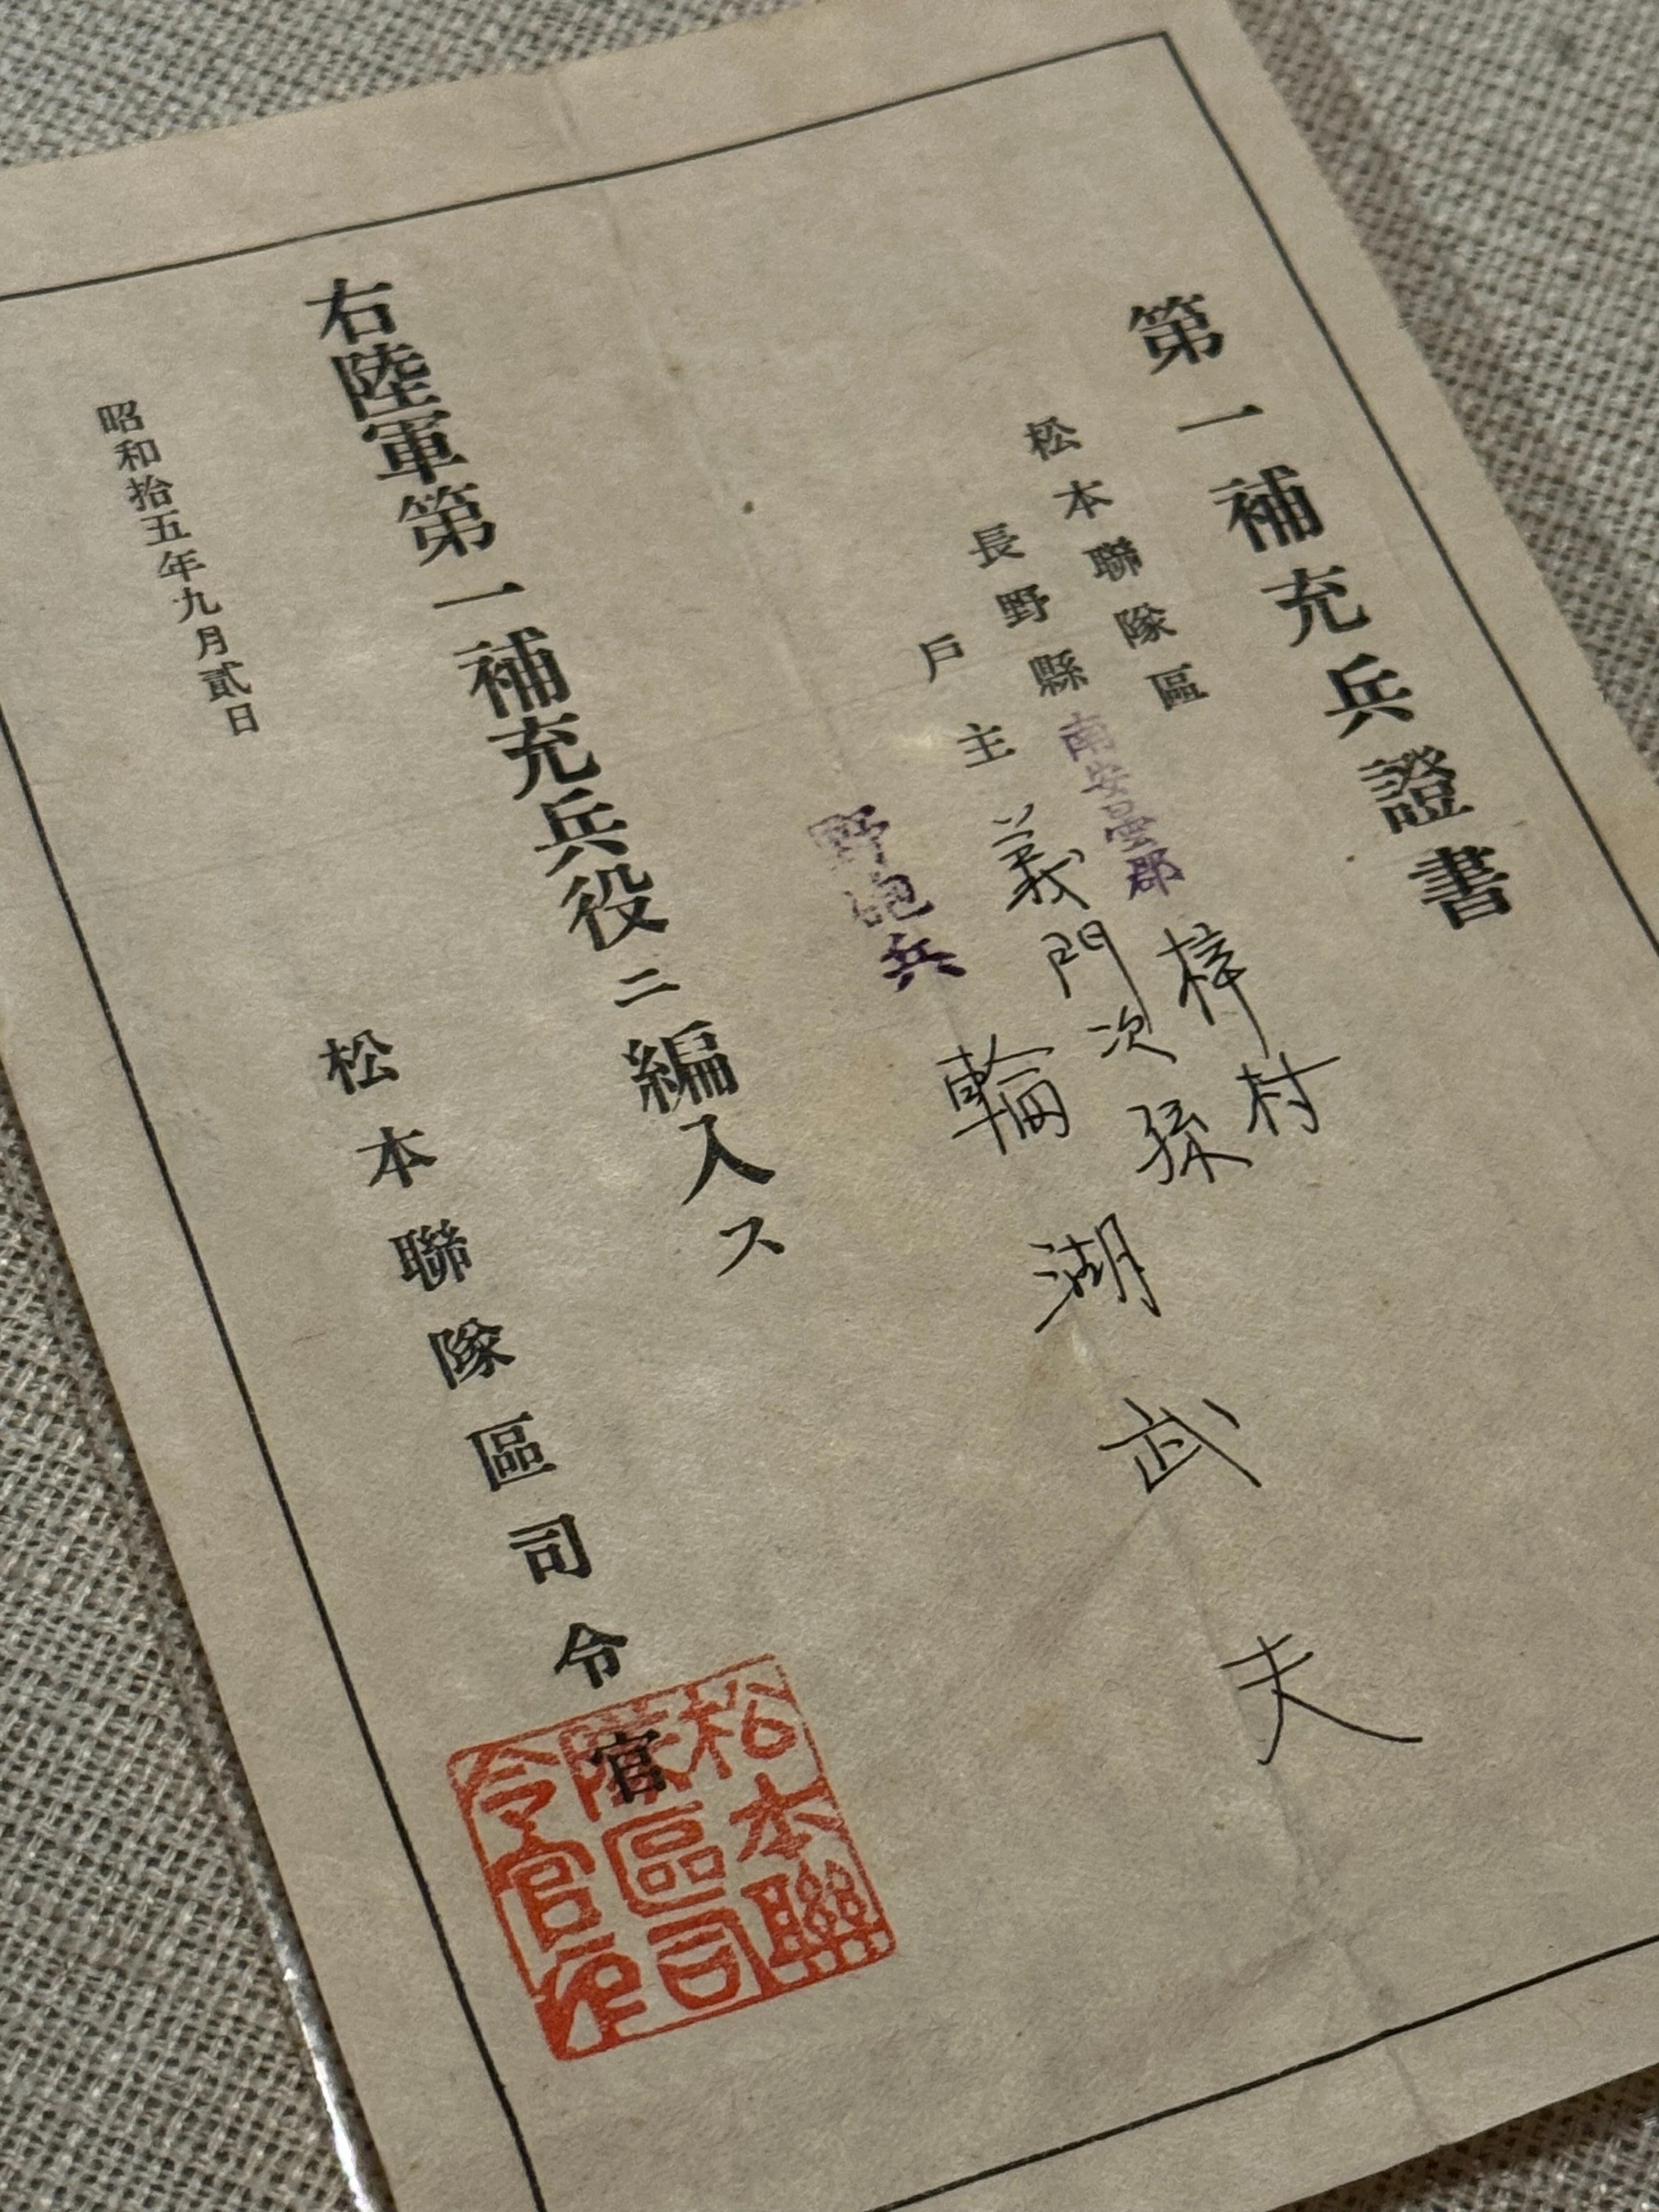 第一補充兵證書
松本聯隊區
長野縣南安曇郡梓村
戶主義門次孫
野砲兵
輪湖武夫
右陸軍第一補充兵役ニ編入ス
昭和拾五年九月貳日
松本聯隊區司令官
松本聯
隊區司
令官印